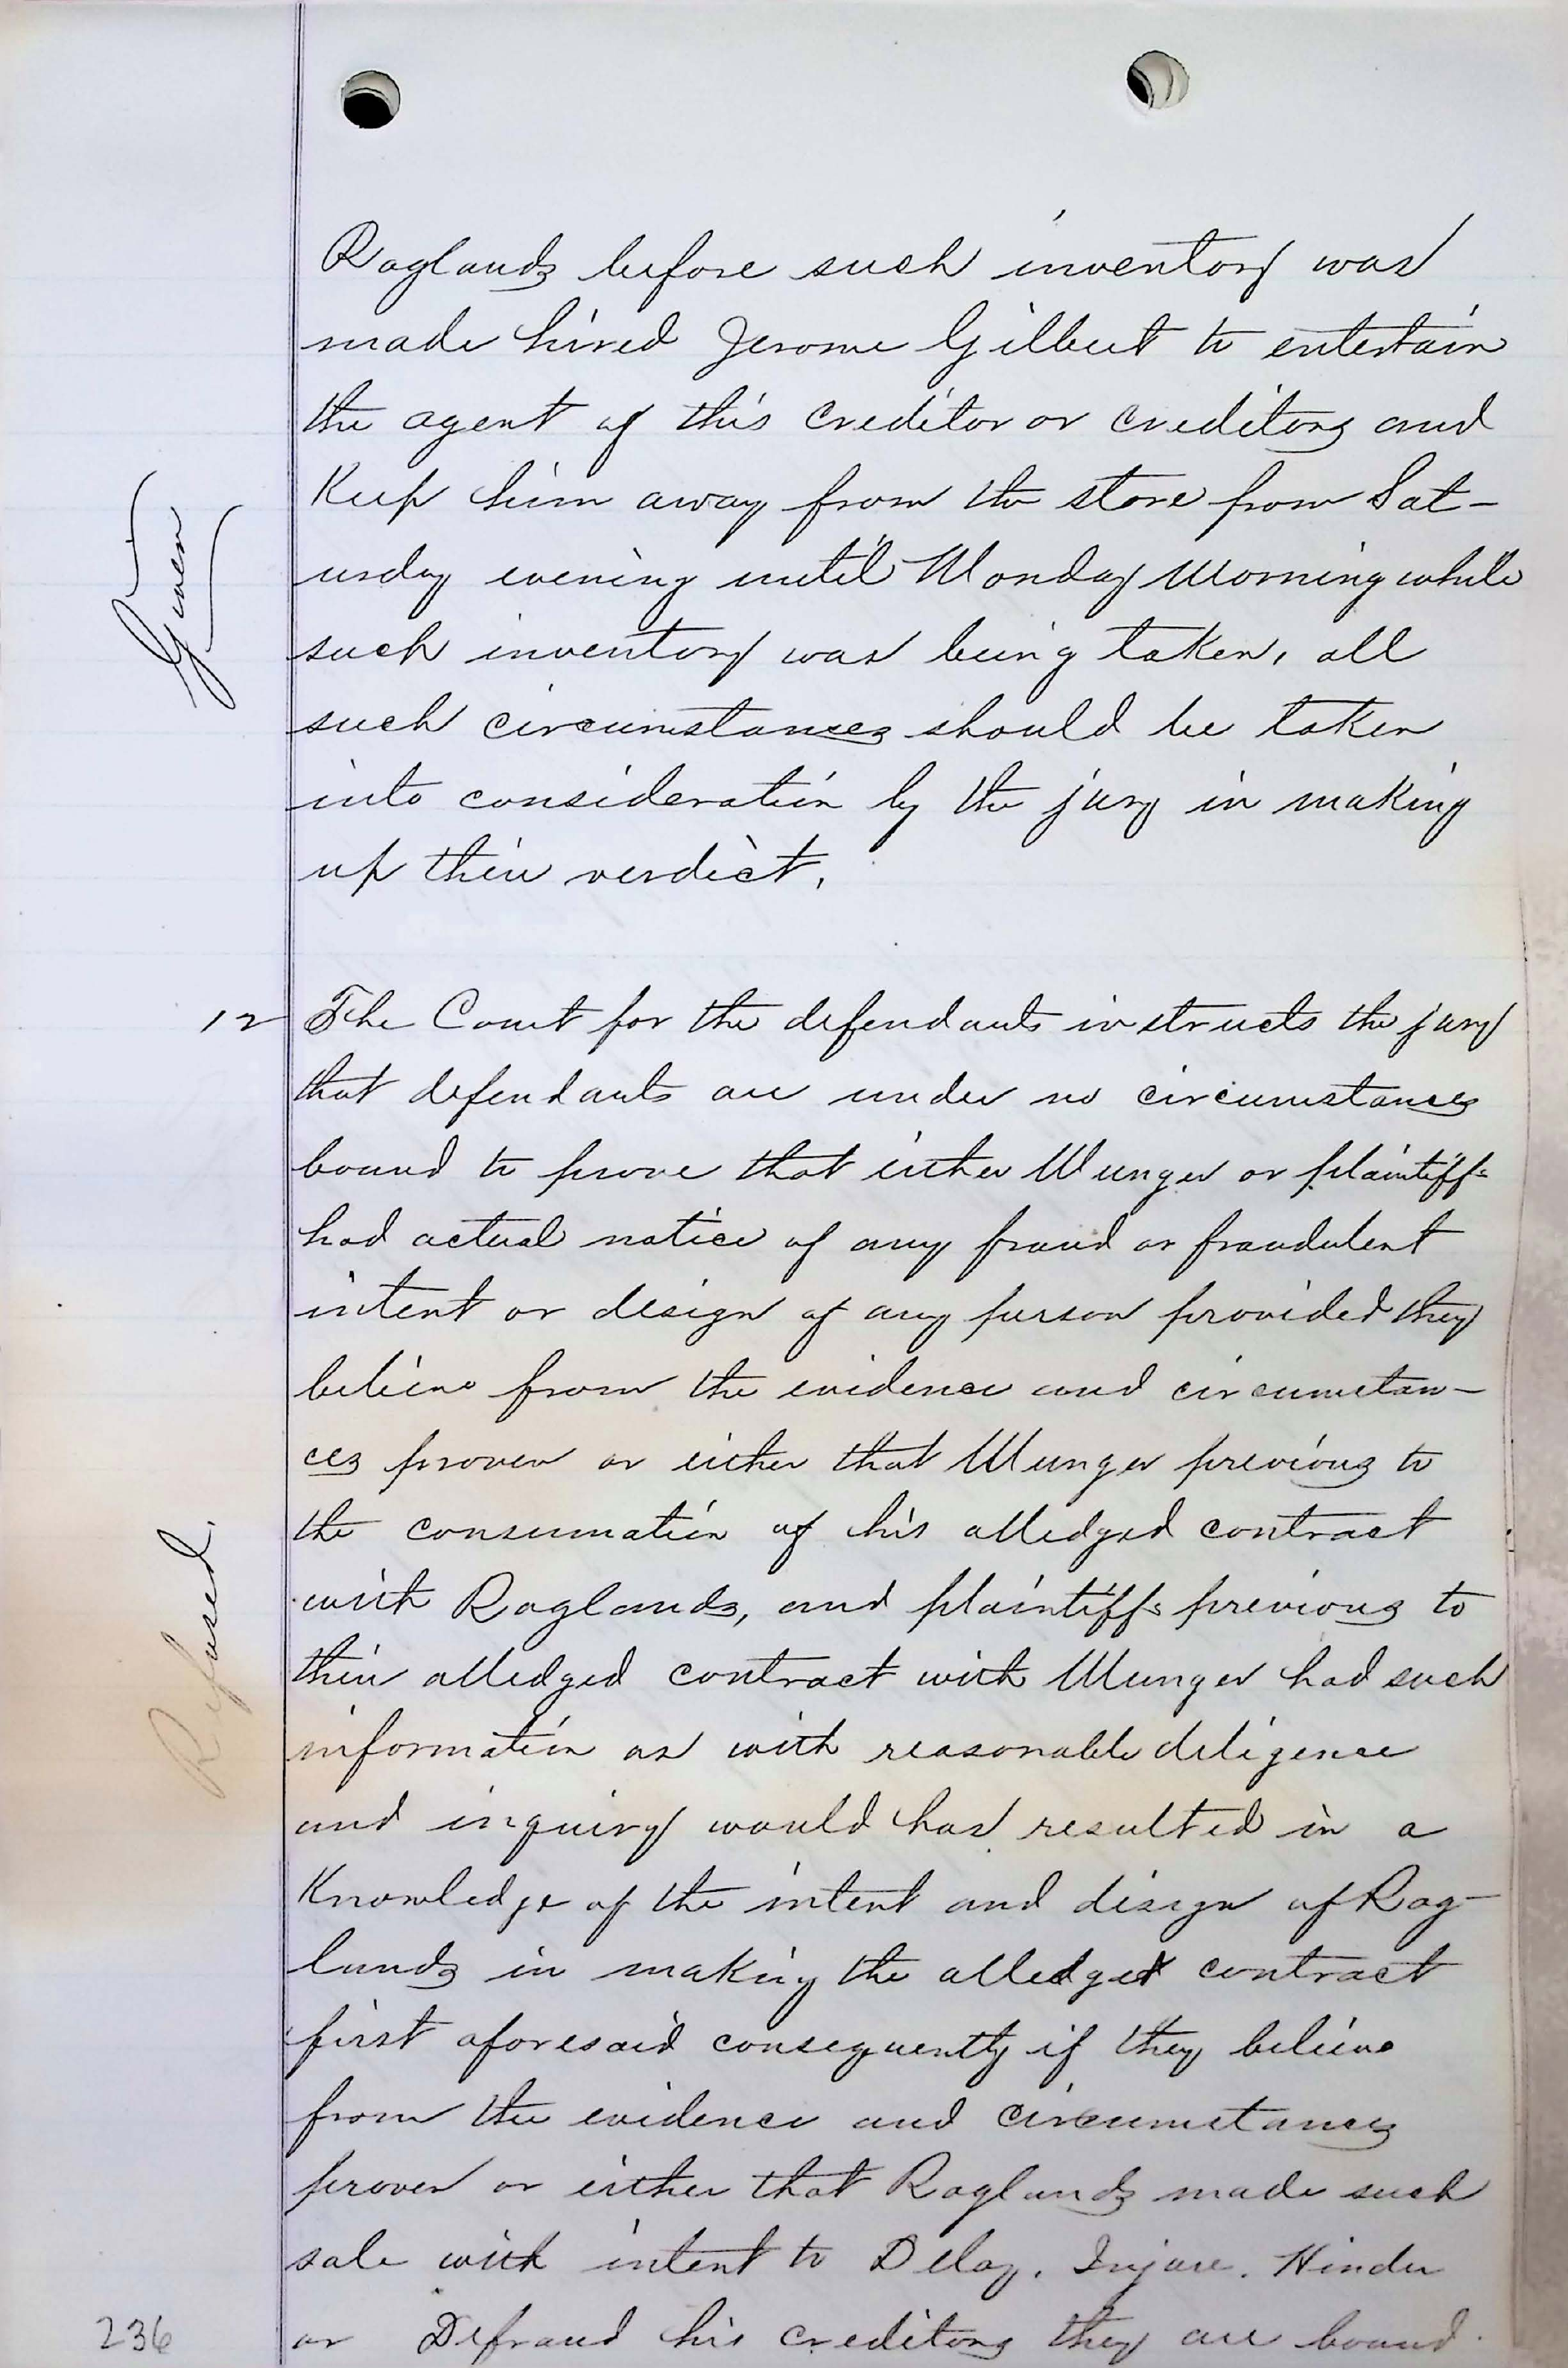 Raglands before such inventory was
made hired Jerome Gilbert to entertain
the agent of this creditor or creditors and
Keep him away from the store from Sat-
urday evening until Monday Morning while
such inventory was being taken, all
such circumstances should be taken
into consideration by the jury in making
up their verdict.
Given
12 The Court for the defendants instructs the jury
that defendants are under no circumstances
bound to prove that either Munger or plaintiffs
had actual notice of any fraud or fraudulent
intent or design of any person provided they
believe from the evidence and circumstan-
ces proven or either that Munger previous to
the consumation of his alledged contract
with Raglands, and plaintiffs previous to
their alledged contract with Munger had such
information as with reasonable diligence
and inquiry would has resulted in a
Knowledge of the intent and disign of Rag-
lands in making the alledged contract
first aforesaid consequently if they believe
from the evidence and circumstances
proven or either that Raglands made such
sale with intent to Delay. Injure. Hinder
or Defraud his creditors they are bound
Refused.
236